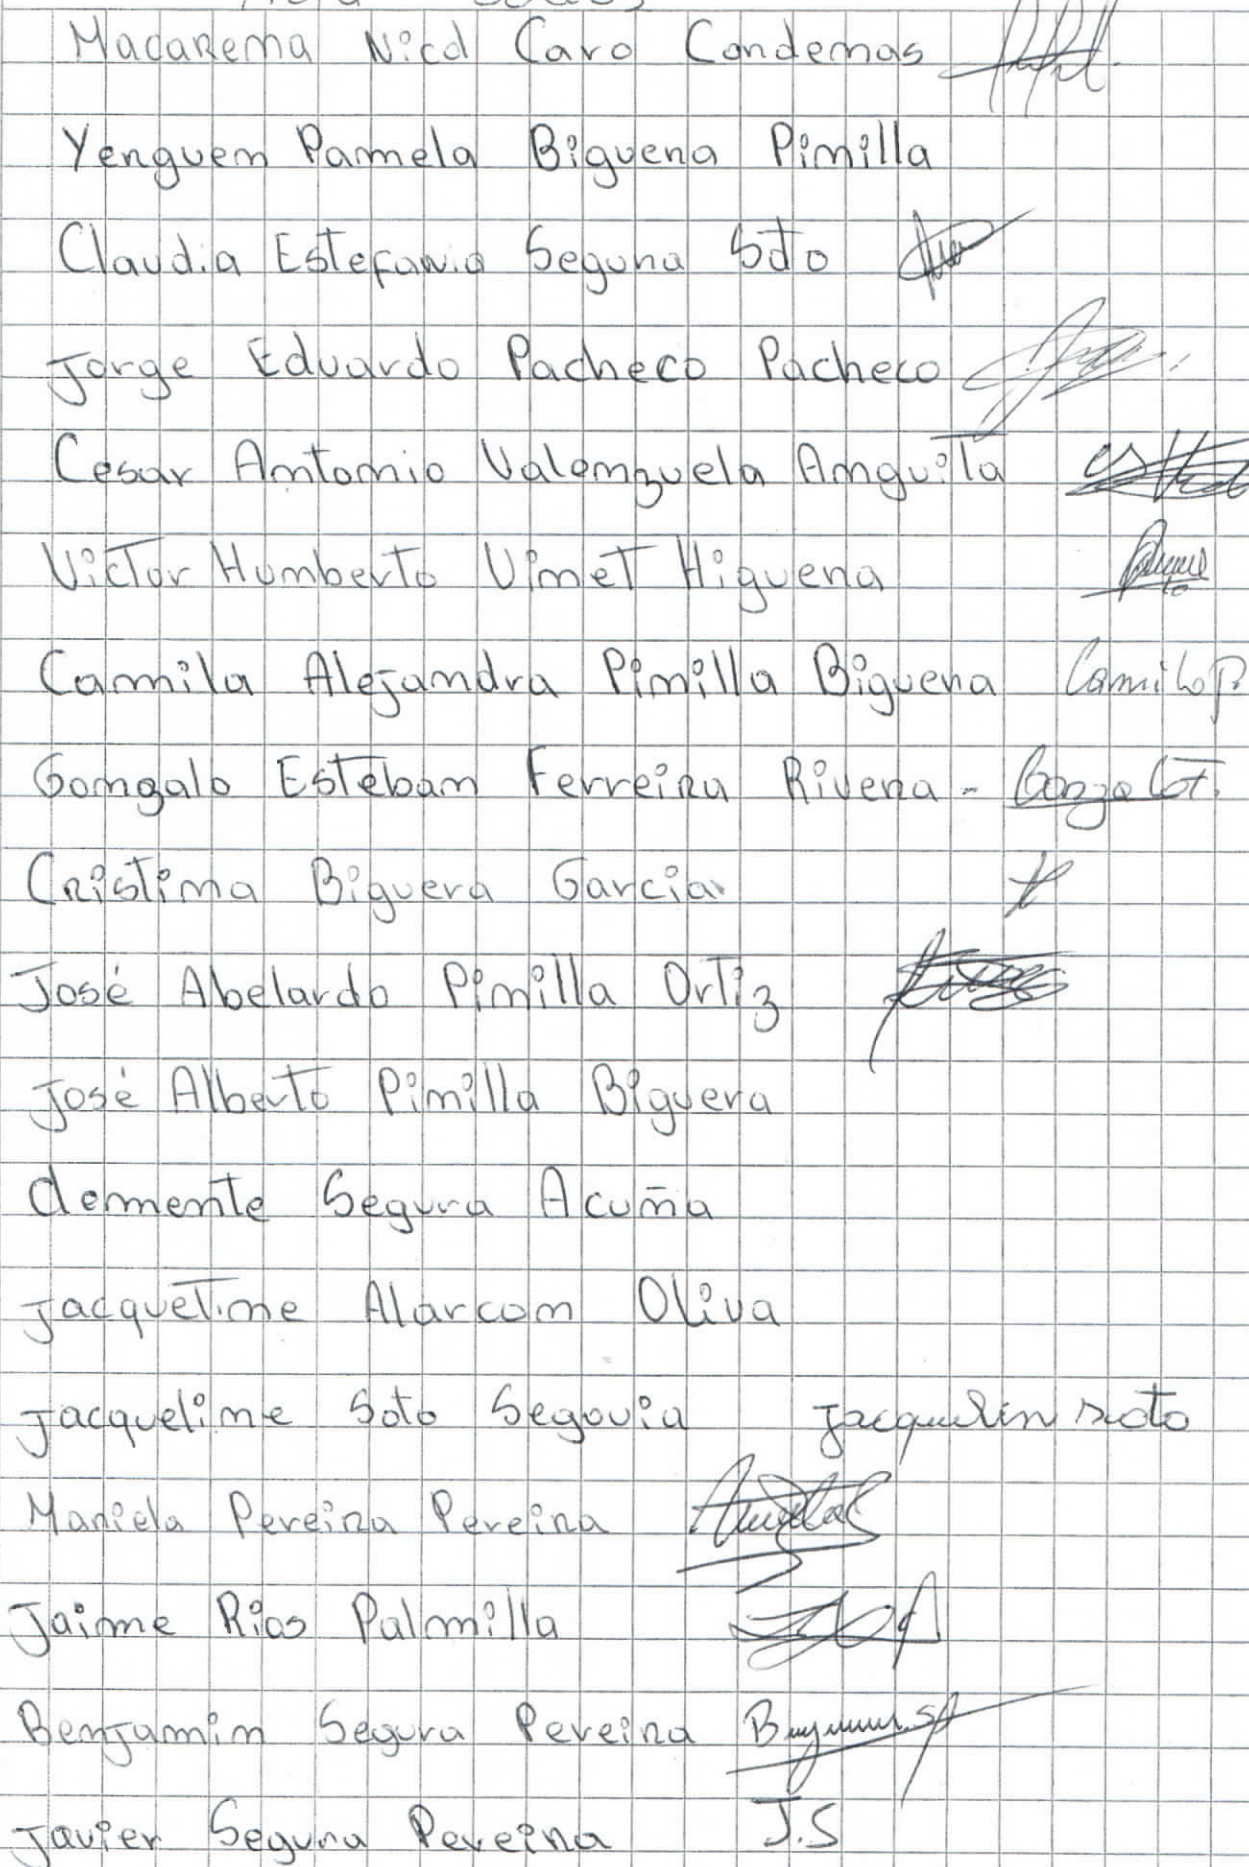 Macarena Nicol Caro Condemas
Yenguem Pamela Biguera Pinilla
Claudia Estefania Segura Soto
Jorge Eduardo Pacheco Pacheco
Cesar Antonio Valenzuela Anguita
Victor Humberto Vinet Higuera
Camila Alejandra Pinilla Biguera Camila P.
Gonzalo Esteban Ferreira Rivera - Gonzalo F.
Cristina Biguera Garcia
José Abelardo Pinilla Ortiz
José Alberto Pinilla Biguera
Clemente Segura Acuña
Jacquetine Alarcon Oliva
Jacqueline Soto Segovia Jacquelin Soto
Mariela Pereira Pereira
Jaime Rios Palmilla
Benjamin Segura Pereira
Javier Segura Pereira J.S